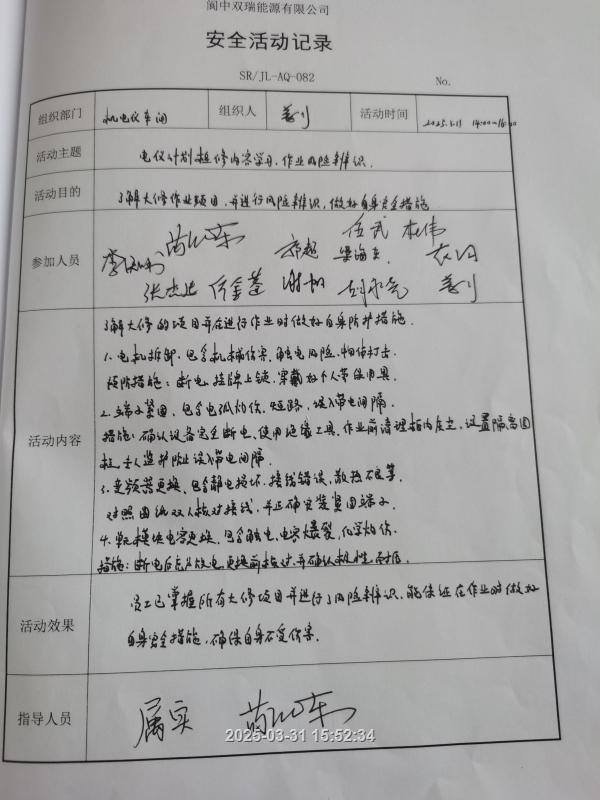 阆中双瑞能源有限公司
安全活动记录
SR/JL-AQ-082 No.
组织部门 机电仪车间 组织人 活动时间 14:00-16:00
活动主题 电仪计划检修内容学习、作业风险辨识.
活动目的 了解大修作业项目,并进行风险辨识,做好自身安全措施
参加人员
伍武 杜伟
张杰
活动内容
了解大修的项目并在进行作业时做好自身防护措施.
1、电机拆卸、包含机械伤害、触电风险、物体打击
预防措施:断电、挂牌上锁、穿戴好个人劳保用具.
2、端子紧固、包含电弧灼伤、短路、误入带电间隔
措施:确认设备完全断电、使用绝缘工具、作业前清理柜内灰尘、设置隔离围
栏、专人监护防止误入带电间隔.
3、变频器更换、包含静电损坏、接线错误、散热不良等.
对照图纸双人核对接线、并正确安装紧固端子.
4、单元模块电容更换、包含触电、电容爆裂、化学灼伤
措施:断电后充分放电、更换前核对、并确认极性
活动效果
员工已掌握所有大修项目并进行了风险辨识、能保证在作业时做好
自身安全措施,确保自身不受伤害.
指导人员 属实
2025-03-31 15:52:34